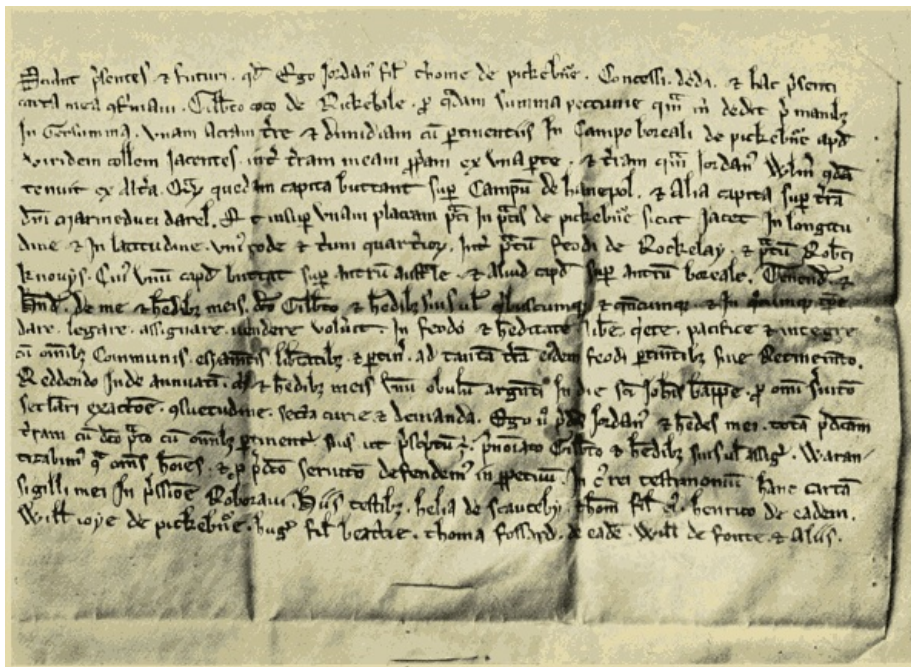 Sciant p̃sentes & futuri . qd̃ Ego Jordan̾ fil̃ thome de pickebñe . Concessi . dedi . & hac p̃senti
carta mea 9firmaui . Gilb̃to coco de Rickehale . ꝓ q̃dam summa peccunie qm̃ m̃ dedit p̃ manibȝ
In Gersumma . vnam Acram t̃re & dimidiam cũ ꝑtinentiis In Campo boreali de pickebñe apd̃
viridem collem Jacentes . int̃ t̃ram meam ꝓp̃am ex vna ꝑte . & t̃ram qm̃ Jordan̾ Wlm̃
tenuit ex Alt̃a . quedam capita buttant suꝑ Campũ de hanepol . & Alia capita suꝑ t̃rã
dñi marmeduci darel . Et insuꝑ vnam placiam p̃ti In p̃tis de pickebñe sicut Jacet In longitu
dine & In latitudine . vni̾ rode & t̃um quart̃ioꝝ . Int̃ p̃tũ feodi de Rockelay . & p̃tũ Rob̃ti
knouys . Cui̾ vnũ capd̃ buttat suꝑ & aliud capd̃ suꝑ boreale . Tenend̃ . &
h̃nd̃ . de me & h̃edibȝ meis . d̃to Gilb̃to & h̃edibȝ suis ul̃ q̃buscumq̃ & qñcumq̃ . & In
dare . legare . assignare . uendere uolũit . In feodo & h̃editate . lib̃e . q̃ete . pacifice & integre
cũ om̃ibȝ Communis . lib̃tatibȝ & ꝑtiñ . ad tantã t̃rã eidem feodi ꝑtinẽtibȝ siue Retinemto .
Reddendo Inde annuatĩ . m̃ & h̃edibȝ meis vnũ obulũ arg̃nti In die sc̃i Joh̃is bapp̃e . ꝓ om̃i s̃uitio
sec̃lari exacĩone . 9suetudine . secta curie & demanda . Ego u̾ p̃dc̃s Jordan̾ & h̃edes mei . totã p̃dictam
t̃ram cũ d̃co p̃to cũ om̃ibȝ ꝑtinent̃ suis ut p̃sc̃ptũ ẽ . p̃noĩato Gilb̃to & h̃edibȝ suis ul̃ assig̃ . Waran-
tizabim̾ 9̃ om̃s hoĩes . & ꝓ p̃dc̃o seruitio defendem̾ in ꝑpetuũ . In c̾ rei testimoniũ hanc cartã
sigilli mei In p̃ssiõe Roboraui . Hiis testibȝ . helia de scauceby . thom̃ fil̃ ei̾ . henrico de eadem .
Will̃ ioye de pickebñe . hug̃ fil̃ beatrie . thoma fossard . de eadẽ . Will̃ de fonte . & Aliis .